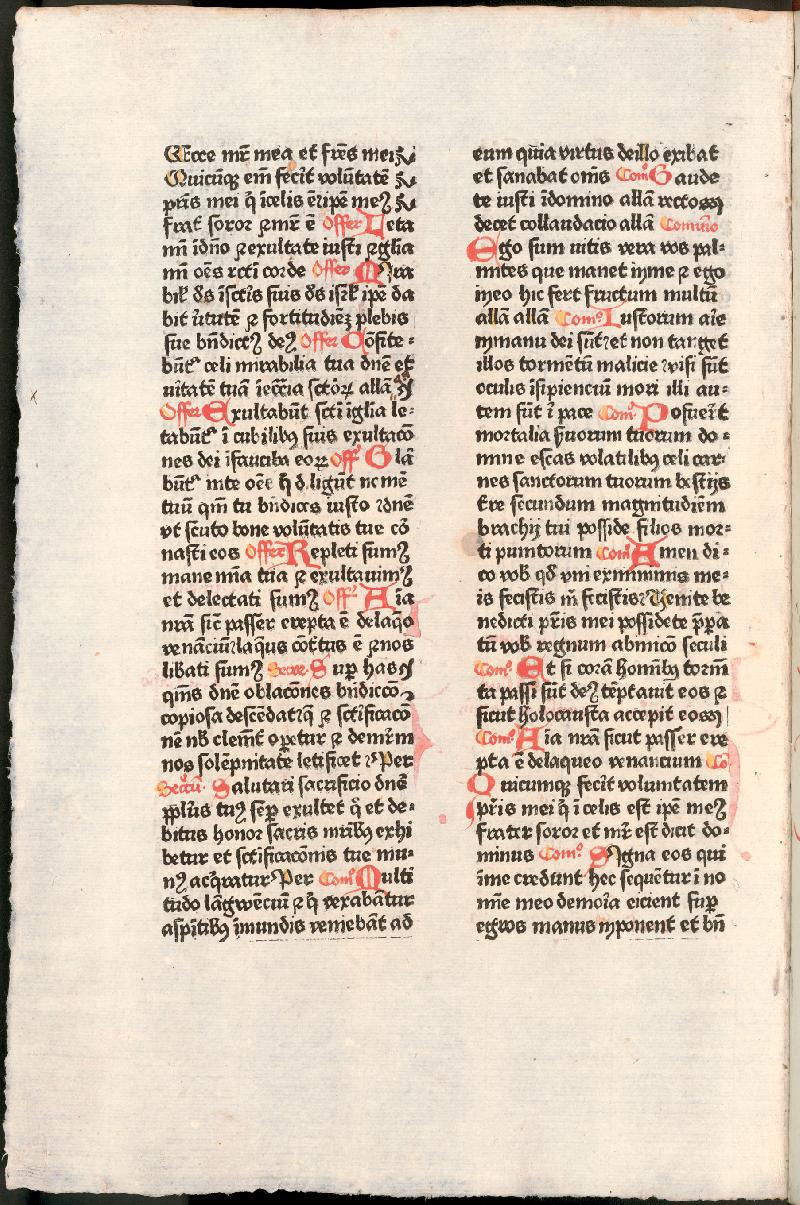 Ecce mr̄ mea et fr̄es mei
Quicūqꝫ em̄ fecit volūtatē
pr̄is mei q̄ ī celis ē ip̄e meꝰ
frat̄ soror ⁊ mr̄ ē Offer Leta
mī īdn̄o ⁊ exultate iusti ⁊ glia
mī oēs rcti corde Offer Mira
bilˢ ds̄ ī sctīs suis ds̄ isrl̄ ip̄e da
bit v̄tutē ⁊ fortitudiēꝫ plebis
sue bn̄dictꝰ deꝰ Offer Cōfite⸗
būt̄ celi mirabilia tua dn̄e et
v̄itatē tuā ī ecc̄ia sctōꝝ allā
Offer Exultabūt scti ī glia le⸗
tabūt̄ ī cubilibꝰ suis exultacō
nes dei ī faucibꝰ eoꝝ Off̄ Glā
būt̄ in te oēs q̄ diligūt nomē
tuū qm̄ tu bn̄dices iusto dn̄e
vt scuto bone volūtatis tue co
nasti eos Offer Repleti sumꝰ
mane mīa tua ⁊ exultauimꝰ
et delectati sumꝰ Off̄ Aīa
nrā sic̄ passer erepta ē de laq̄o
venanciū laqus cōt̄tus ē ⁊ nos
libati sumꝰ Secre. Sup̄ has
qm̄s dn̄e oblacōnes bn̄dicco
copiosa descēdat q̄ ⁊ sctificacō
nē nb̄ clemēt̄ opetur ⁊ de mr̄m
nos solēpnitate letificet Per
Secrū. Salutari sacrificio dn̄e
pplūs tuꝰ sēp̄ exultet q̄ et de⸗
bitus honor sacris mr̄ibꝰ exhi
betur et sctificacōnis tue mu⸗
nꝰ acq̄ratur Per Com̄ Multi
tudo lāgwenciū ⁊ q̄ vexabātur
a spītibꝰ īmundis veniebāt ad
eum quia virtus de illo exibat
et sanabat om̄s Com̄ Gaude
te iusti ī domino allā rectos
decet collaudacio allā Comūio
Ego sum uitis vera vos pal⸗
mites que manet in me ⁊ ego
in eo hic fert fructum multū
allā allā Com̄ Iustorum aīe
in manu dei sūt et non tanget
illos tormētū malicie visi sūt
oculis īsipienciū mori illi au⸗
tem sūt ī pace Com̄ Posuerūt
mortalia s̄uorum tuorum do⸗
mine escas volatilibꝰ celi car⸗
nes sanctorum tuorum bestijs
t̄re secundum magnitudiēm
brachij tui posside filios mor⸗
ti punitorum Com̄ Amen di⸗
co vob̄ qd̄ vni ex minimis me⸗
is fecistis m̄ fecistis Venite be
nedicti pr̄is mei possidete p̄pa
tū vob̄ regnum ab inicō seculi
Com̄ Et si corā homībꝰ torm̄
ta passi sūt deꝰ tēptauit eos ⁊
sicut holocausta accepit eos
Com̄ Aīa nrā sicut passer ere
pta ē de laqueo venancium Cō
Quicumqꝫ fecit voluntatem
pr̄is mei q̄ ī celis est ip̄e meꝰ
frater soror et mr̄ est dicit do⸗
minus Com̄ Signa eos qui
ī me credunt hec sequētur ī no
mīe meo demoīa eicient sup̄
egros manus īponent et bn̄